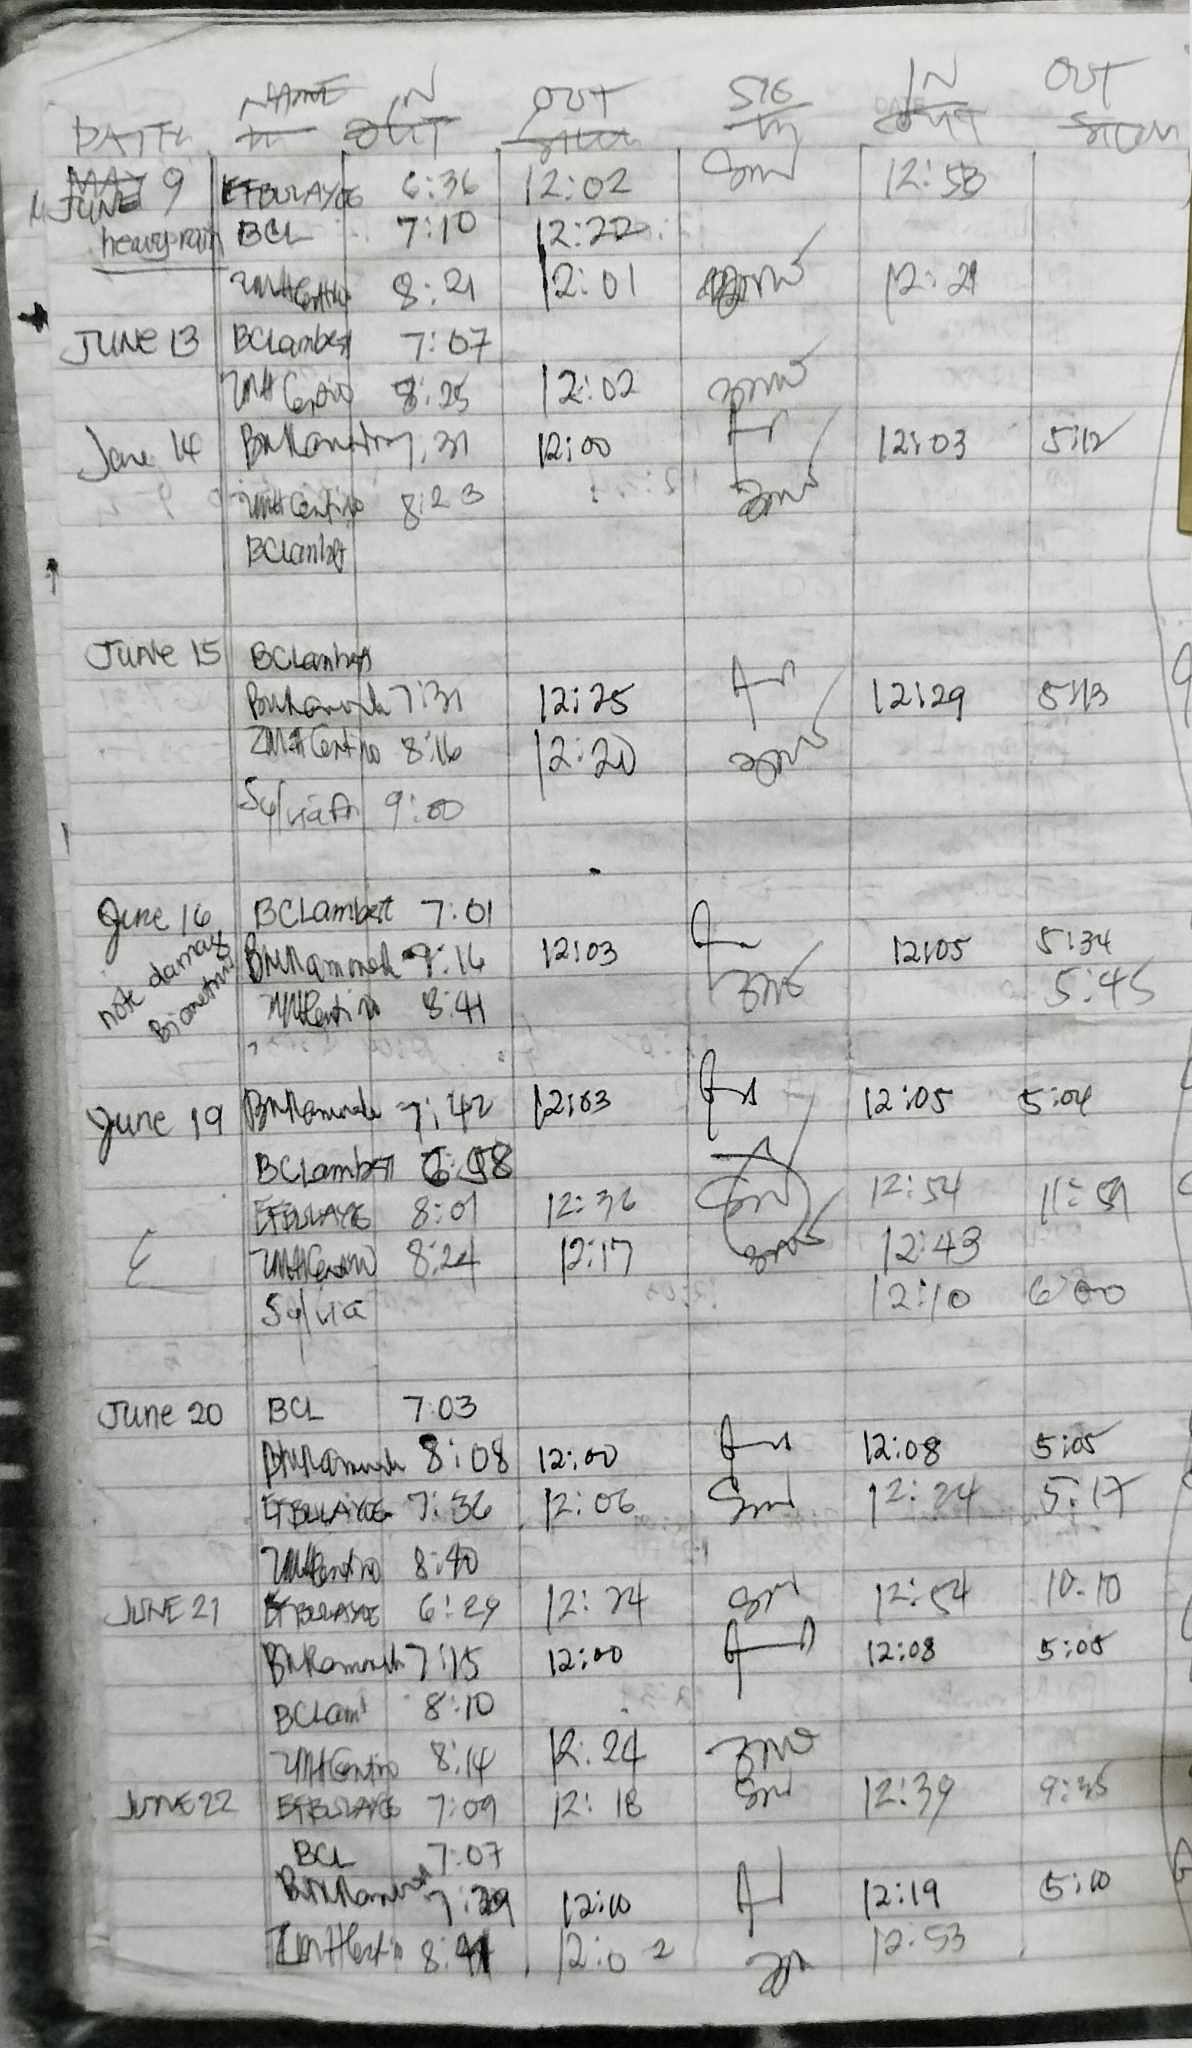 NAME IN OUT SIG IN OUT
DATE
MAY 9 EFBULAYOG 6:36 12:02 12:53
JUNE
heavy rain BCL 7:10 12:22
ZMHCentino 8:21 12:01 12:21
JUNE 13 BCLambert 7:07
ZMHCentino 8:25 12:02
June 14 7:31 12:00 12:03 5:12
ZMHCentino 8:23
BCLambert
June 15 BCLambert
7:31 12:25 12:29 5:13
ZMHCentino 8:16 12:20
Sylvia 9:00
June 16 BCLambert 7:01
note damage 9:16 12:03 12:05 5:34
Biometric ZMHCentino 8:41 5:45
June 19 7:42 12:03 12:05 5:04
BCLambert 6:58
EFBULAYOG 8:01 12:36 12:54 11:59
ZMHCentino 8:24 12:17 12:43
Sylvia 12:10 6:00
June 20 BCL 7:03
8:08 12:00 12:08 5:05
EFBULAYOG 7:36 12:06 12:24 5:17
ZMHCentino 8:40
JUNE 21 EFBULAYOG 6:29 12:24 12:54 10:10
7:15 12:00 12:08 5:05
BCLam 8:10
ZMHCentino 8:14 12:24
JUNE 22 EFBULAYOG 7:09 12:18 12:39 9:35
BCL 7:07
7:39 12:10 12:19 5:10
ZMHCentino 8:41 12:02 12:53